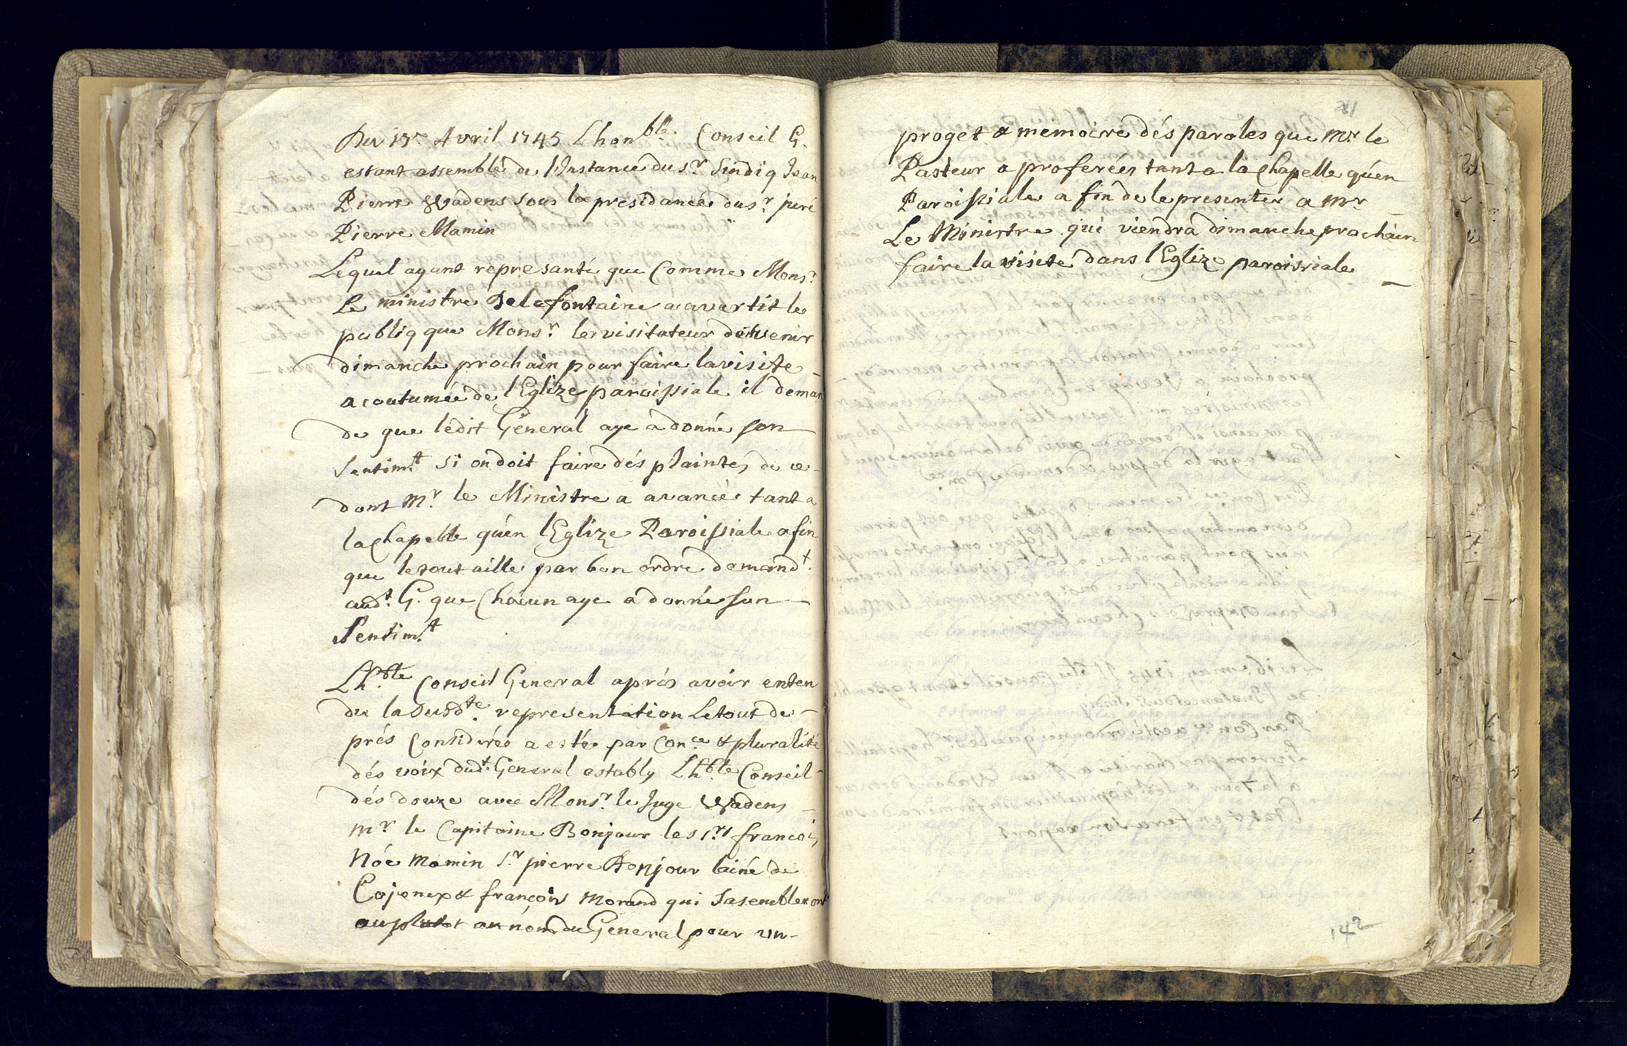 Du 17e Avril 1745 Lhonble. Conseil G.
estant assemblé de l'Instance du sr. Sindiq Jean
Pierre Wadens sous la presidance du sr. juré
Pierre Mamin
Lequel ayant represanté que Comme Monsr
Le ministre Delafontaine a avertit le
publiq que Monsr. le visitateur doit venir
dimanche prochain pour faire la visite
acoutumée de l'Eglize paroissiale il deman
de que ledit General aye a donné son
Sentimt. si on doit faire dés plaintes de ce
dont Mr. le Ministre a avancé tant a
la Chapelle qu'en l'Eglize Paroissiale afin
que le tout aille par bon ordre demandt.
audt. G. que Chacun aye a donné son
Sentimt.
Lhble Conseil General aprés avoir enten
du la Susdte. representation Le tout de
prés Considérée a esté par Conce & pluralité
dés voix dudt. General establÿ Lhble Conseil
dés douze avec Monsr. le Juge Wadens
Mr. le Capitaine Bonjour les srs francois
Nóe Mamin Sr. pierre Bonjour lainé de
Cojonex & françois Morand qui Sasembleront
au plutot au nom du General pour un
81
proget & memoire dés paroles que Mr. le
Pasteur a proferées tant a la Chapelle qu'en
Paroissiale a fin de le presenter a Mr
Le Ministre qui viendra dimanche prochain
faire la visite dans l'Eglize paroissiale
142